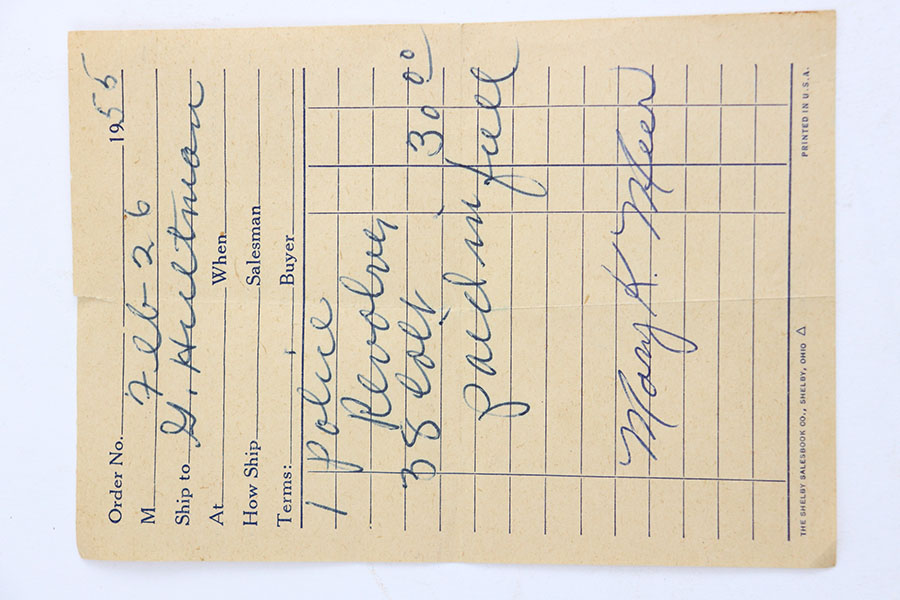 Order No. 1955
M Feb-26
Ship to G. Hultman
At When
How Ship Salesman
Terms: Buyer
1 Police
Revolver
38 Colt 30 00
paid in full
Mary K. Meer
THE SHELBY SALESBOOK CO., SHELBY, OHIO PRINTED IN U.S.A.